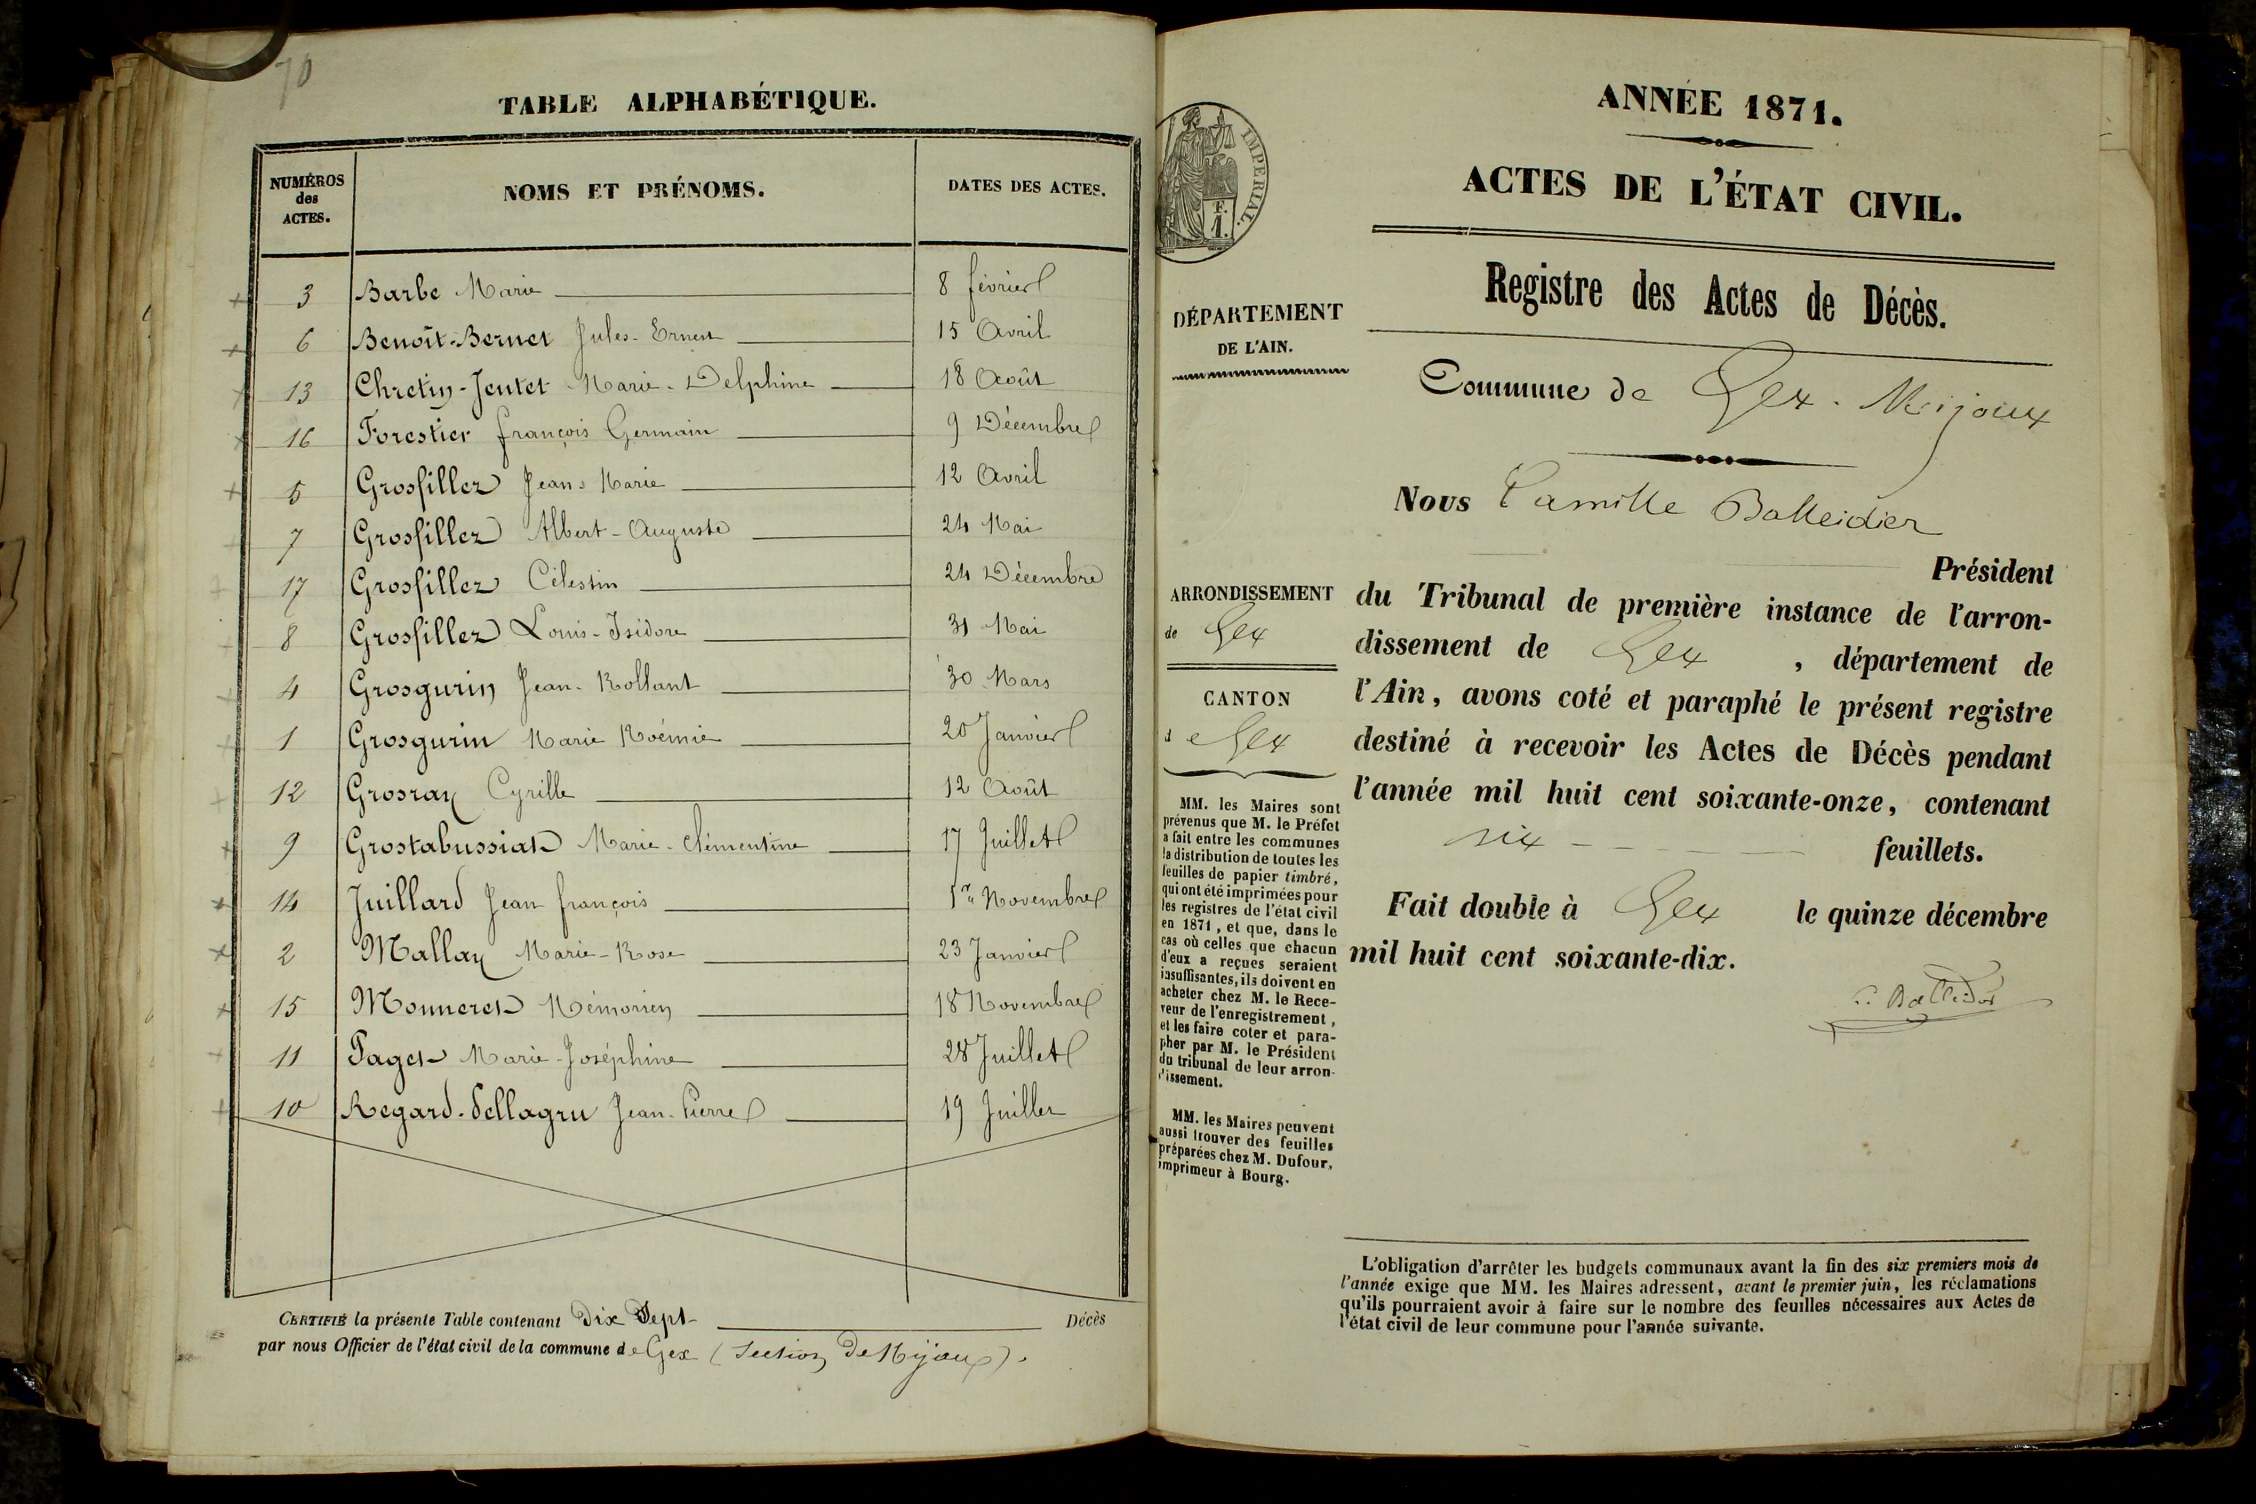 70
TABLE ALPHABÉTIQUE.
NUMÉROS des ACTES. NOMS ET PRÉNOMS. DATES DES ACTES.
3 Barbe Marie 8 février
6 Benoît-Bernet Jules-Ernest 15 Avril
13 Chretin-Jeutet Marie-Delphine 18 Août
16 Forestier françois Germain 9 Décembre
5 Grosfillez Jean-Marie 12 Avril
7 Grosfillez Albert-Auguste 24 Mai
17 Grosfillez Célestin 24 Décembre
8 Grosfillez Louis-Isidore 31 Mai
4 Grosgurin Jean-Rolland 30 Mars
1 Grosgurin Marie Noémie 20 Janvier
12 Grosray Cyrille 12 Août
9 Grostabussiat Marie-Clémentine 17 Juillet
14 Juillard Jean françois 1er Novembre
2 Mallay Marie-Rose 23 Janvier
15 Monneret 18 Novembre
11 Pages Marie-Joséphine 28 Juillet
10 Regard-Dellagru Jean-Pierre 19 Juillet
CERTIFIÉ la présente Table contenant Dix Sept Décès
par nous Officier de l'état civil de la commune de Gex (Section De Mijoux).
IMPERIAL.
F.
1.
DÉPARTEMENT
DE L'AIN.
ARRONDISSEMENT
de Gex
CANTON
de Gex
MM. les Maires sont
prévenus que M. le Préfet
a fait entre les communes
la distribution de toutes les
feuilles de papier timbré,
qui ont été imprimées pour
les registres de l'état civil
en 1871, et que, dans le
cas où celles que chacun
d'eux a reçues seraient
insuffisantes, ils doivent en
acheter chez M. le Rece-
veur de l'enregistrement,
et les faire coter et para-
pher par M. le Président
du tribunal de leur arron-
dissement.
MM. les Maires peuvent
aussi trouver des feuilles
préparées chez M. Dufour,
imprimeur à Bourg.
ANNÉE 1871.
ACTES DE L'ÉTAT CIVIL.
Registre des Actes de Décès.
Commune de Gex-Mijoux
Nous Camille Balleidier
Président
du Tribunal de première instance de l'arron-
dissement de Gex, département de
l'Ain, avons coté et paraphé le présent registre
destiné à recevoir les Actes de Décès pendant
l'année mil huit cent soixante-onze, contenant
six feuillets.
Fait double à Gex le quinze décembre
mil huit cent soixante-dix.
C. Balleidier
L'obligation d'arrêter les budgets communaux avant la fin des six premiers mois de
l'année exige que MM. les Maires adressent, avant le premier juin, les réclamations
qu'ils pourraient avoir à faire sur le nombre des feuilles nécessaires aux Actes de
l'état civil de leur commune pour l'année suivante.